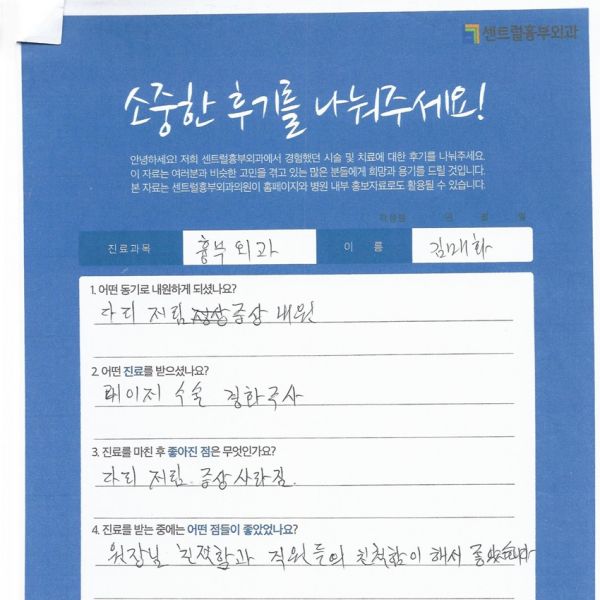 센트럴흉부외과
소중한 후기를 나눠주세요!
안녕하세요! 저희 센트럴흉부외과에서 경험했던 시술 및 치료에 대한 후기를 나눠주세요.
이 자료는 여러분과 비슷한 고민을 겪고 있는 많은 분들에게 희망과 용기를 드릴 것입니다.
본 자료는 센트럴흉부외과의원이 홈페이지와 병원 내부 홍보자료로도 활용될 수 있습니다.
작성일 년 월 일
진료과목 흉부외과 이 름 김매화
1. 어떤 동기로 내원하게 되셨나요?
다리 저림 증상 내원
2. 어떤 진료를 받으셨나요?
레이저 수술 경화주사
3. 진료를 마친 후 좋아진 점은 무엇인가요?
다리 저림. 증상사라짐.
4. 진료를 받는 중에는 어떤 점들이 좋았었나요?
원장님 친절함과 직원들의 친절함이 해서 좋았습니다